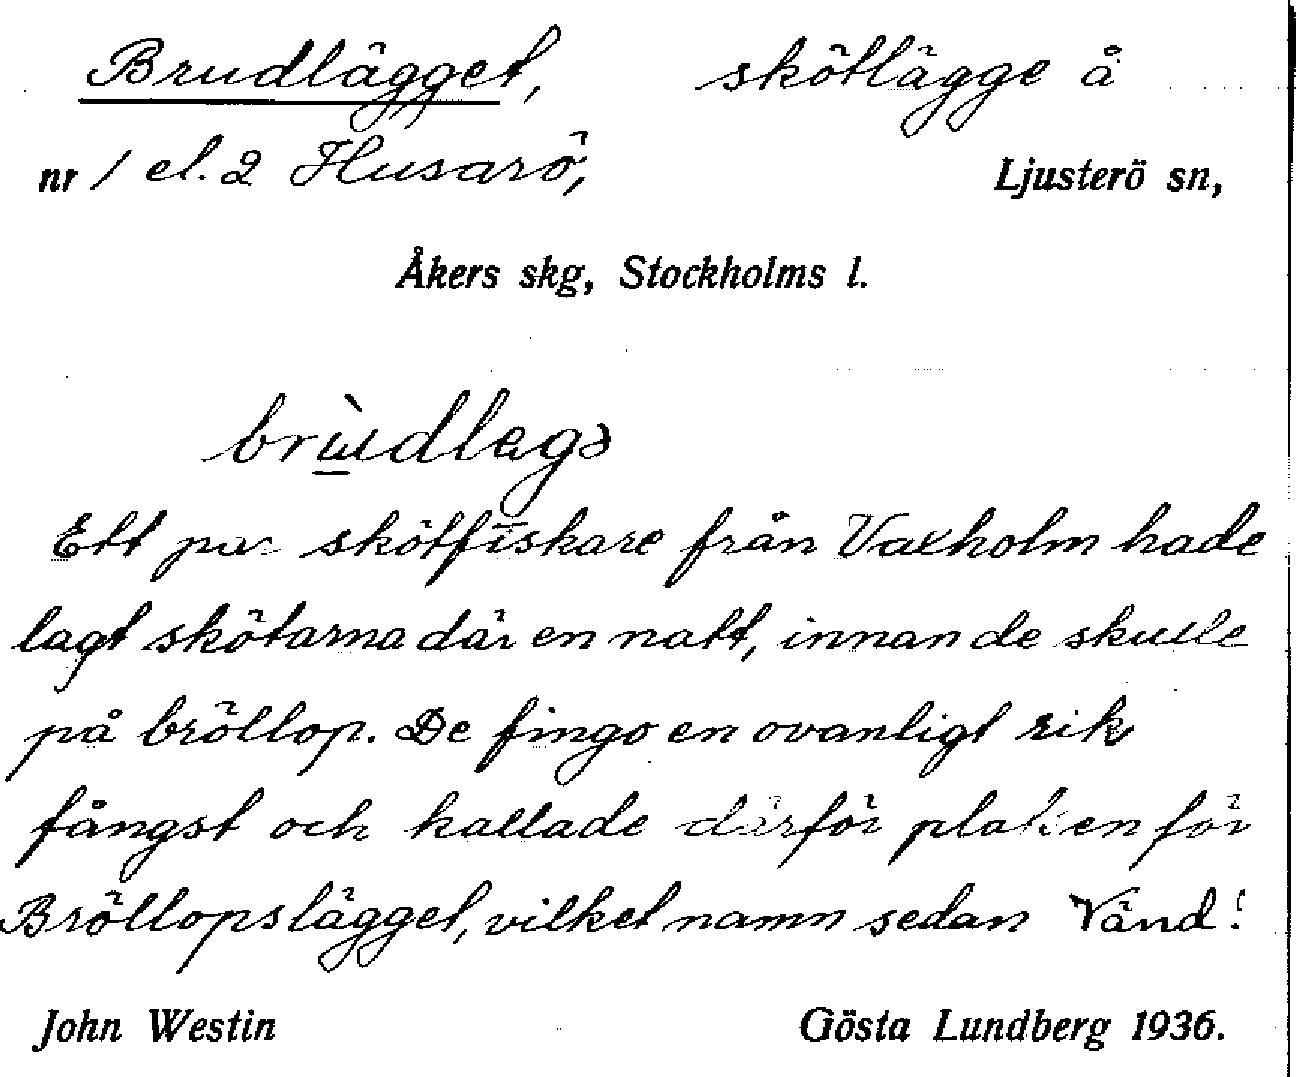 Brudlägget, skötlägge å
nr 1 el. 2 Husarö, Ljusterö sn,
Åkers skg, Stockholms l.
Ett par skötfiskare från Vaxholm hade
lagt skötarna där en natt, innan de skulle
på bröllop. De fingo en ovanligt rik
fångst och kallade därför platsen för
Bröllopslägget, vilket namn sedan Vänd!
John Westin Gösta Lundberg 1936.